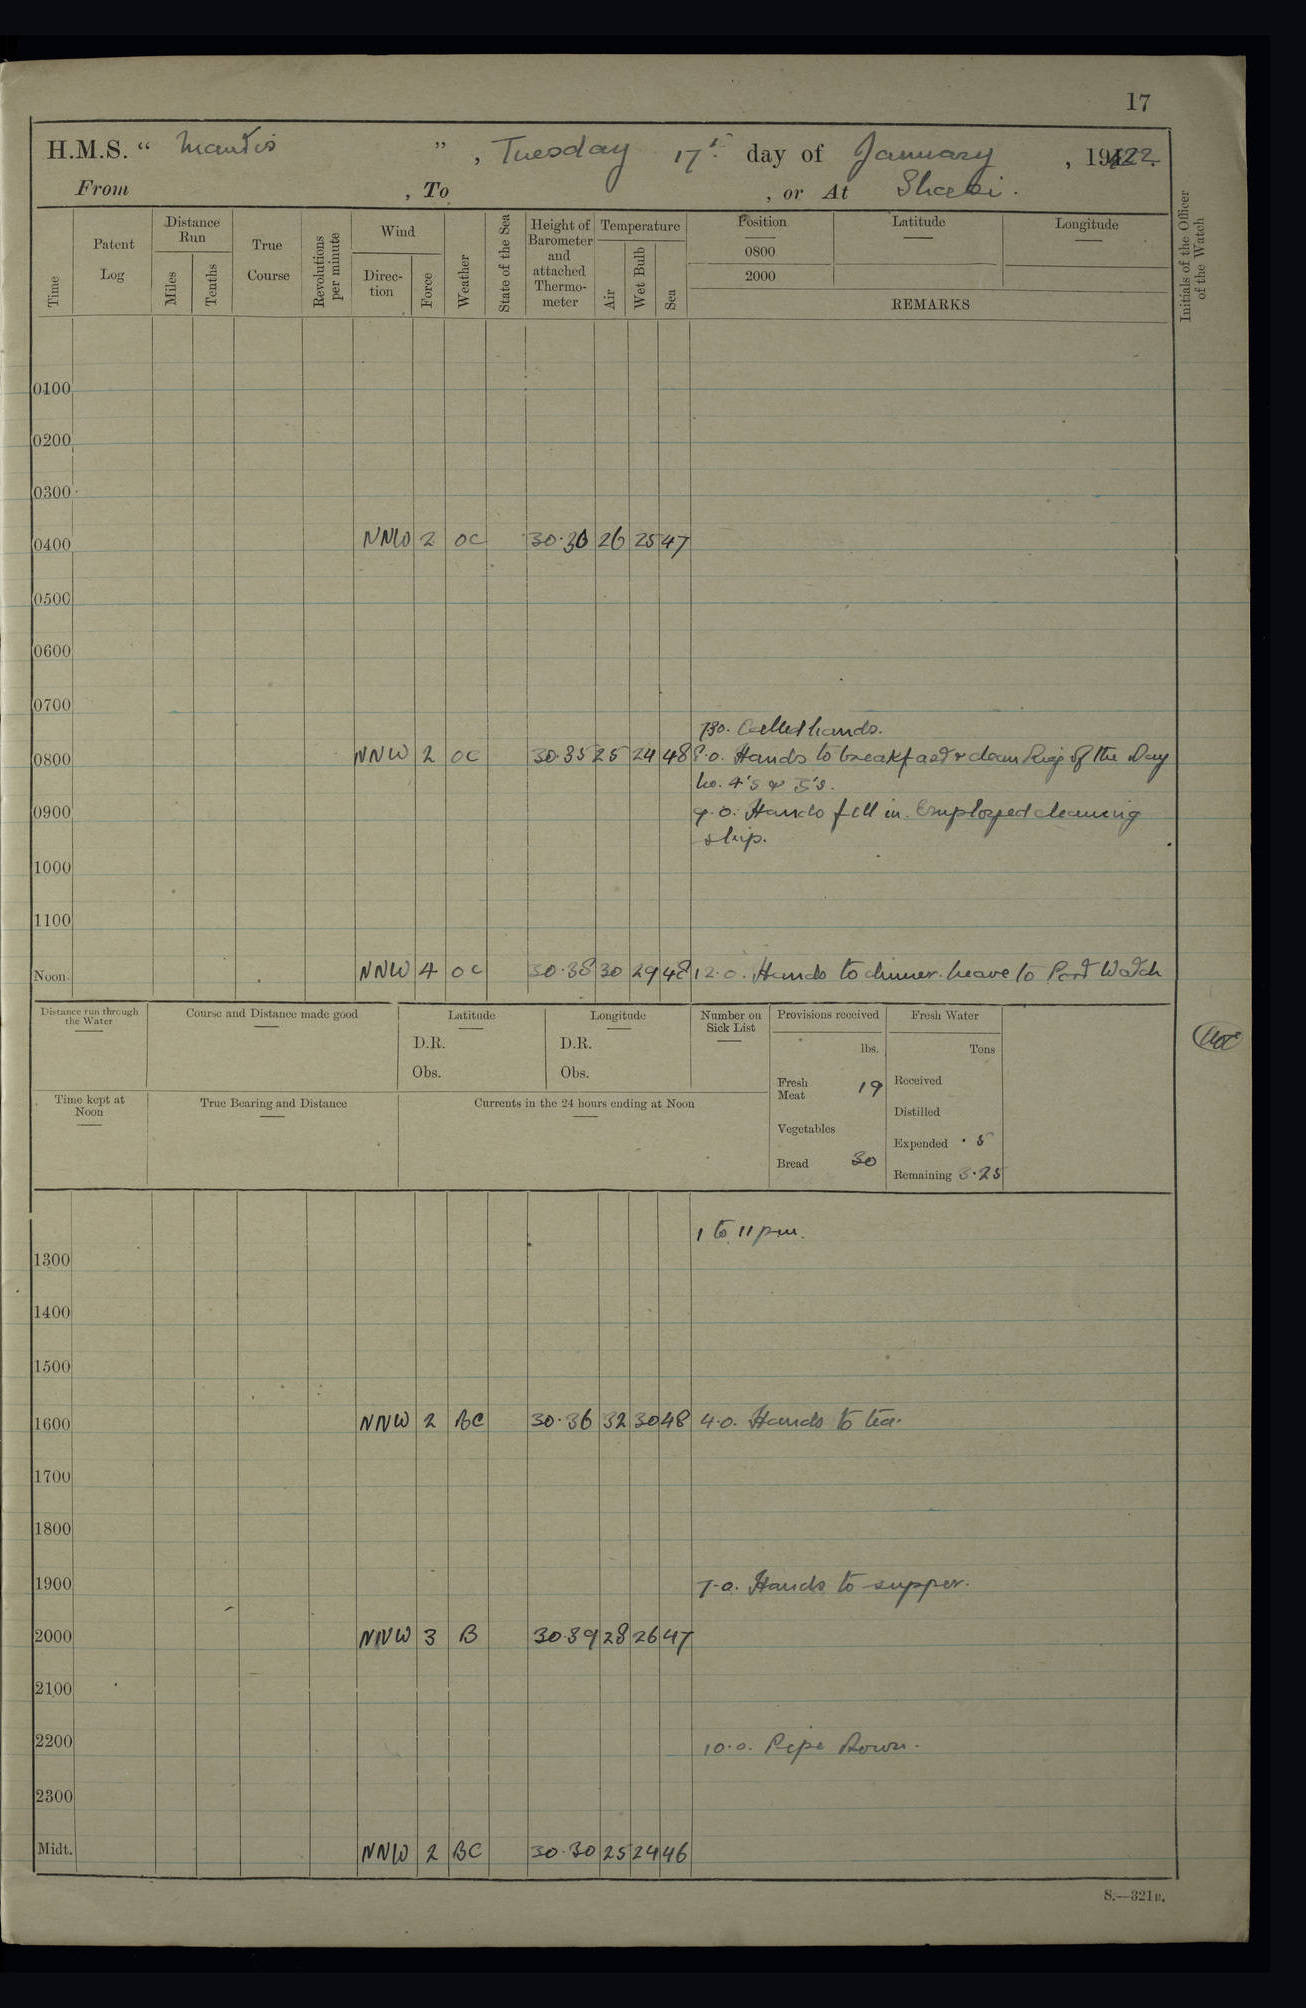 17
H.M.S. “ Mantis ” , Tuesday 17th day of January , 1922.
From , To , or At Shasi.
Time
Patent Log
Distance Run
Miles
Tenths
True Course
Revolutions per minute
Wind
Direc- tion
Force
Weather
State of the Sea
Height of Barometer and attached Thermo- meter
Temperature
Air
Wet Bulb
Sea
Position
0800
2000
Latitude
Longitude
REMARKS
Initials of the Officer of the Watch
0100
0200
0300
0400 NNW 2 OC 30.36 26 25 47
0500
0600
0700
730. Called hands.
0800 NNW 2 OC 30.35 25 24 48 8.0. Hands to breakfast & clean Rig of the Day
No. 4's & 5's.
0900 9.0. Hands fell in. Employed cleaning
ship.
1000
1100
Noon. NNW 4 OC 30.38 30 29 48 12.0. Hands to dinner. Leave to Port Watch
1 to 11 pm.
Distance run through the Water
Course and Distance made good
Latitude
D.R.
Obs.
Longitude
D.R.
Obs.
Number on Sick List
Provisions received
lbs.
Fresh Meat 19
Vegetables
Bread 30
Fresh Water
Tons
Received
Distilled
Expended .5
Remaining 3.25
Time kept at Noon
True Bearing and Distance
Currents in the 24 hours ending at Noon
1300
1400
1500
1600 NNW 2 BC 30.36 32 30 48 4.0. Hands to tea.
1700
1800
1900 7.0. Hands to supper.
2000 NNW 3 B 30.39 28 26 47
2100
2200 10.0. Pipe Down.
2300
Midt. NNW 2 BC 30.30 25 24 46
S.—321B.